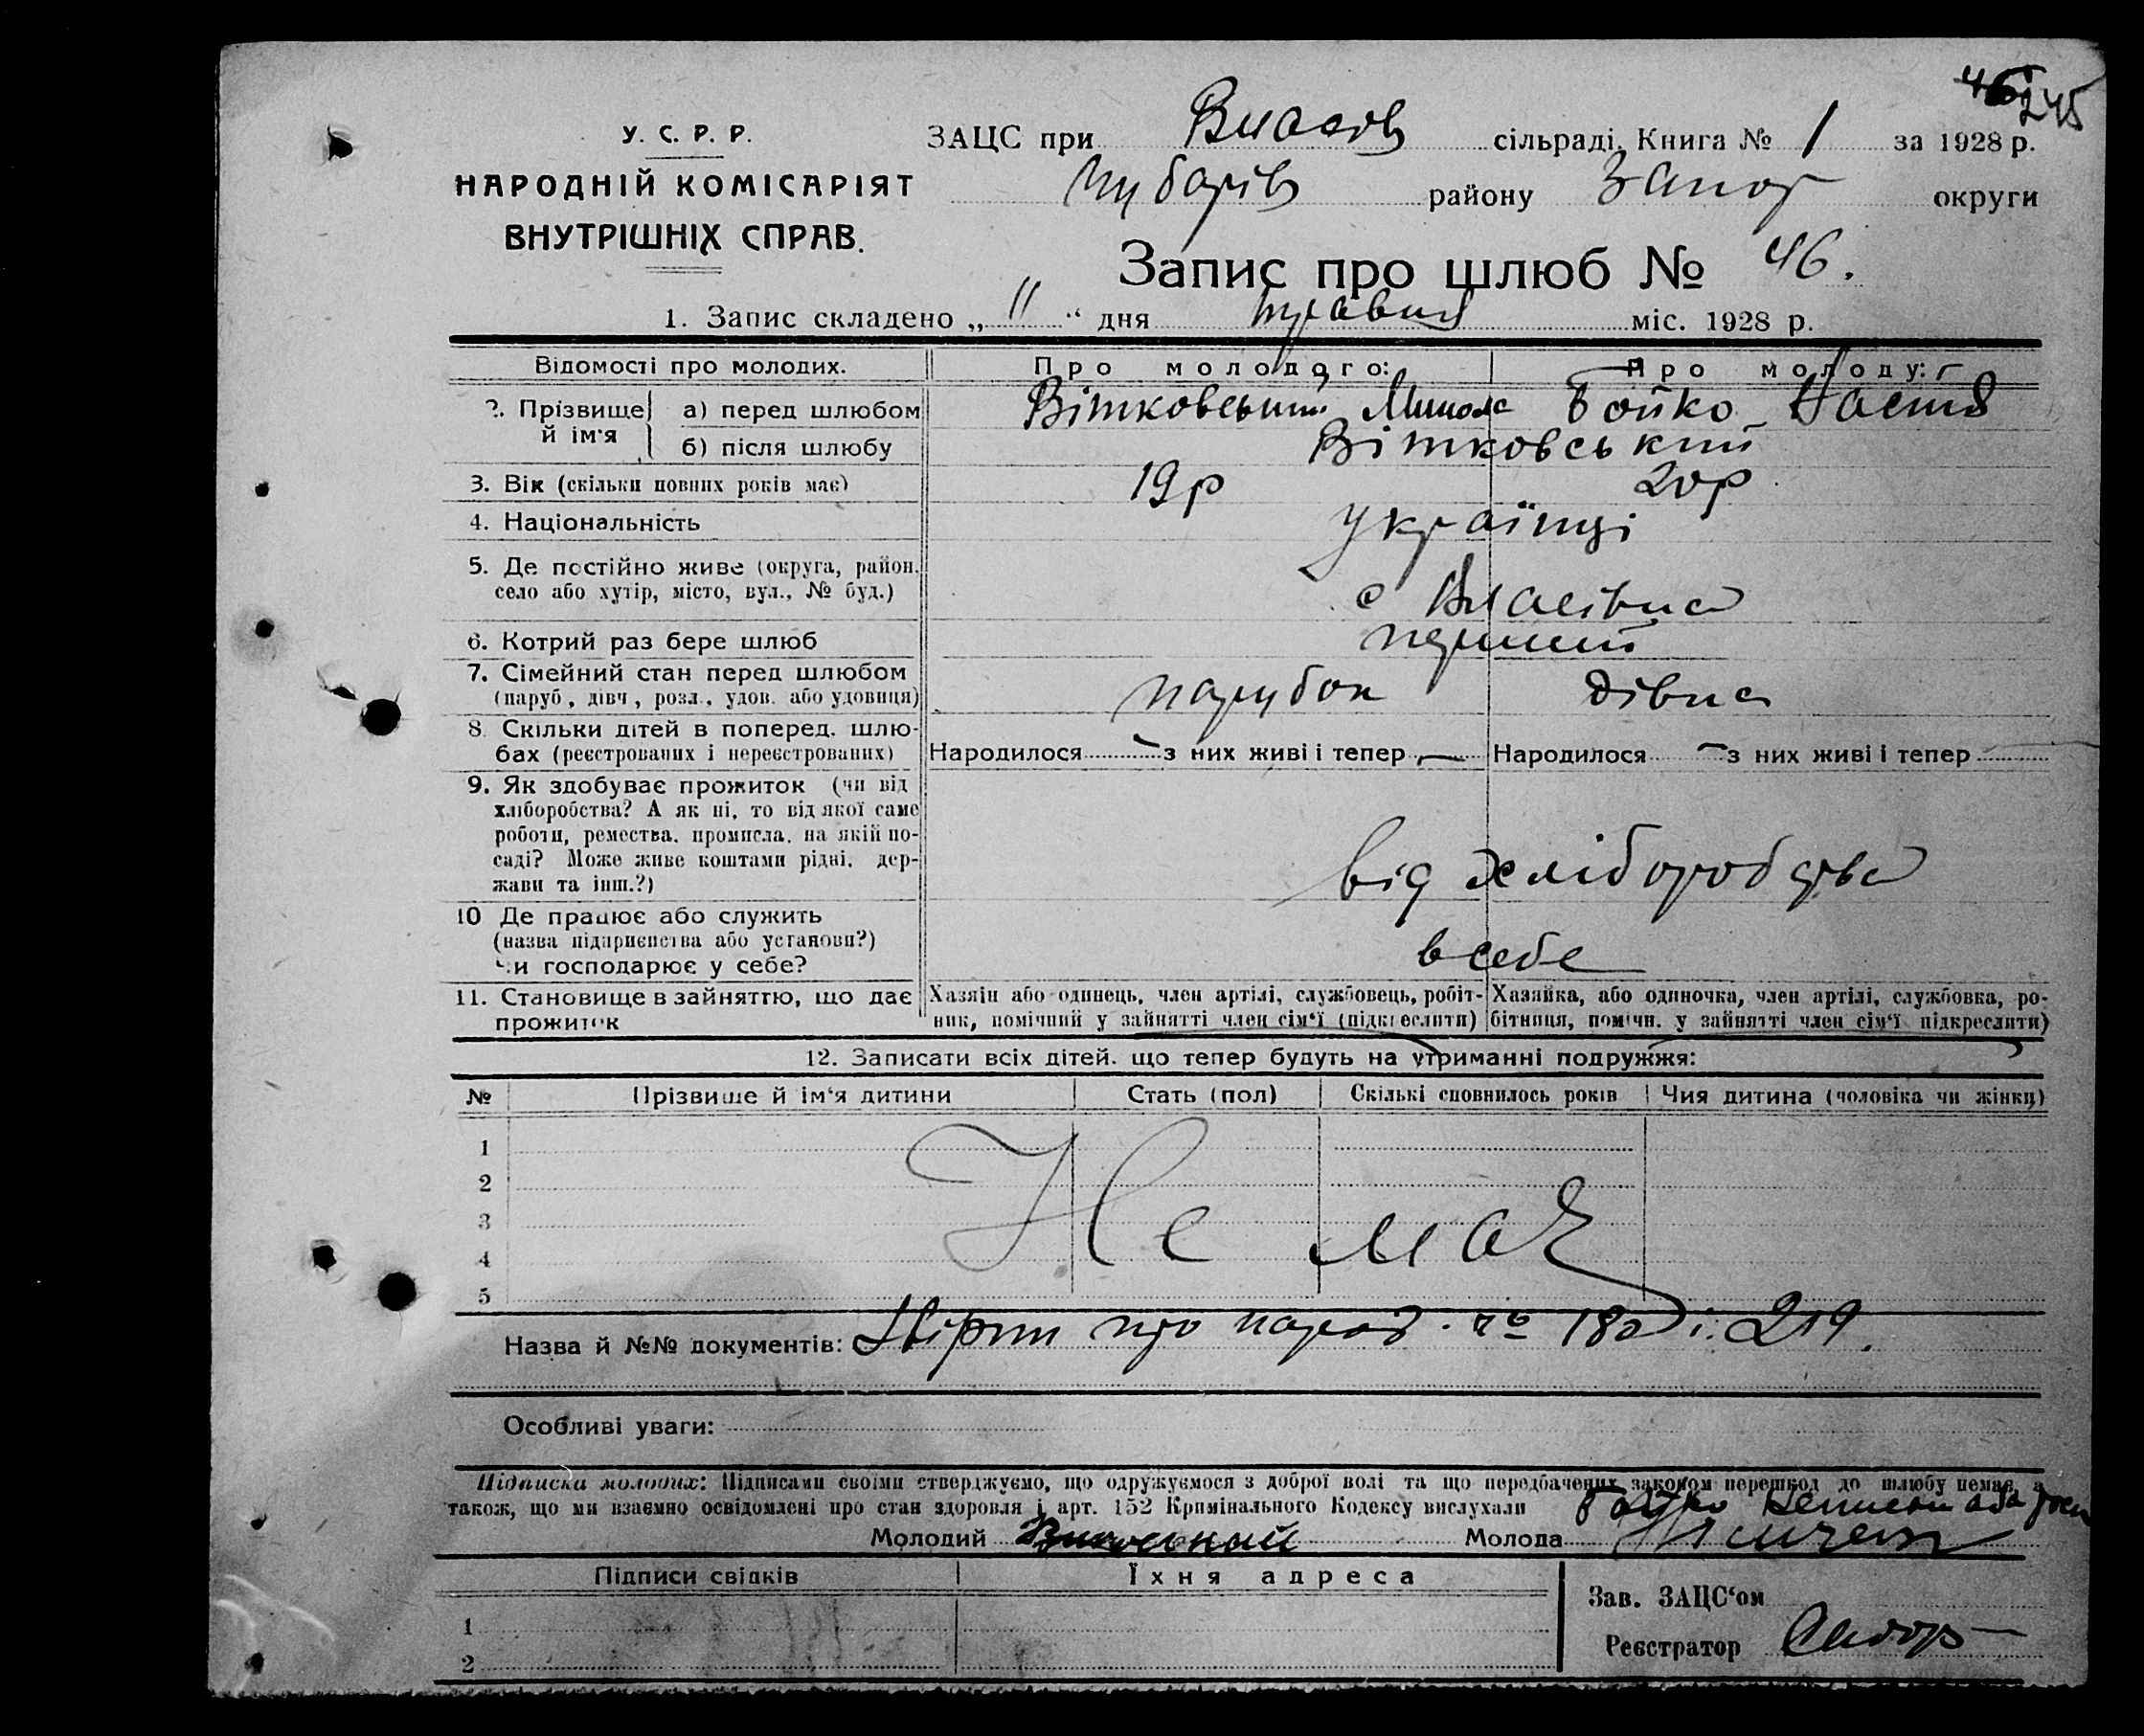 46 245
У. С. Р. Р.
НАРОДНІЙ КОМІСАРІЯТ
ВНУТРІШНІХ СПРАВ.
ЗАЦС при Власов сільраді. Книга № 1 за 1928 р.
Чубарів району Запор округи
Запис про шлюб № 46.
1. Запис складено „ 11 “ дня травня міс. 1928 р.
Відомості про молодих. Про молодого: Про молоду:
2. Прізвище й ім'я а) перед шлюбом Вітковський Микола Бойко Настя
б) після шлюбу Вітковський
3. Вік (скільки повних років має) 19 р 20 р
4. Національність Українці
5. Де постійно живе (округа, район,
село або хутір, місто, вул., № буд.) с Власівка
6. Котрий раз бере шлюб перший
7. Сімейний стан перед шлюбом
(паруб, дівч, розл., удов. або удовиця) парубок дівка
8. Скільки дітей в поперед. шлю-
бах (реєстрованих і нереєстрованих) Народилося — з них живі і тепер — Народилося — з них живі і тепер
9. Як здобуває прожиток (чи від
хліборобства? А як ні, то від якої саме
роботи, ремества, промисла, на якій по-
саді? Може живе коштами рідні, дер-
жави та інш.?) від хліборобства
10 Де працює або служить
(назва підприємства або установи?)
Чи господарює у себе? в себе
11. Становище в зайняттю, що дає
прожиток
Хазяін або одинець, член артілі, службовець, робіт-
ник, помічний у зайнятті член сім'ї (підкреслити)
Хазяйка, або одиночка, член артілі, службовка, ро-
бітниця, помічн. у зайнятті член сім'ї підкреслити)
12. Записати всіх дітей. що тепер будуть на утриманні подружжя:
№ Прізвище й ім'я дитини Стать (пол) Скількі сповнилось років Чия дитина (чоловіка чи жінки)
1
2
3
4
5
Не має
Назва й №№ документів: про народ. № 180 і 219.
Особливі уваги:
Підписка молодих: Підписами своїми стверджуємо, що одружуємося з доброї волі та що передбачених законом перешкод до шлюбу немає, а
також, що ми взаємно освідомлені про стан здоровля і арт. 152 Кримінального Кодексу вислухали
Молодий Молода
Підписи свідків Їхня адреса
1
2
Зав. ЗАЦС'ом
Реєстратор